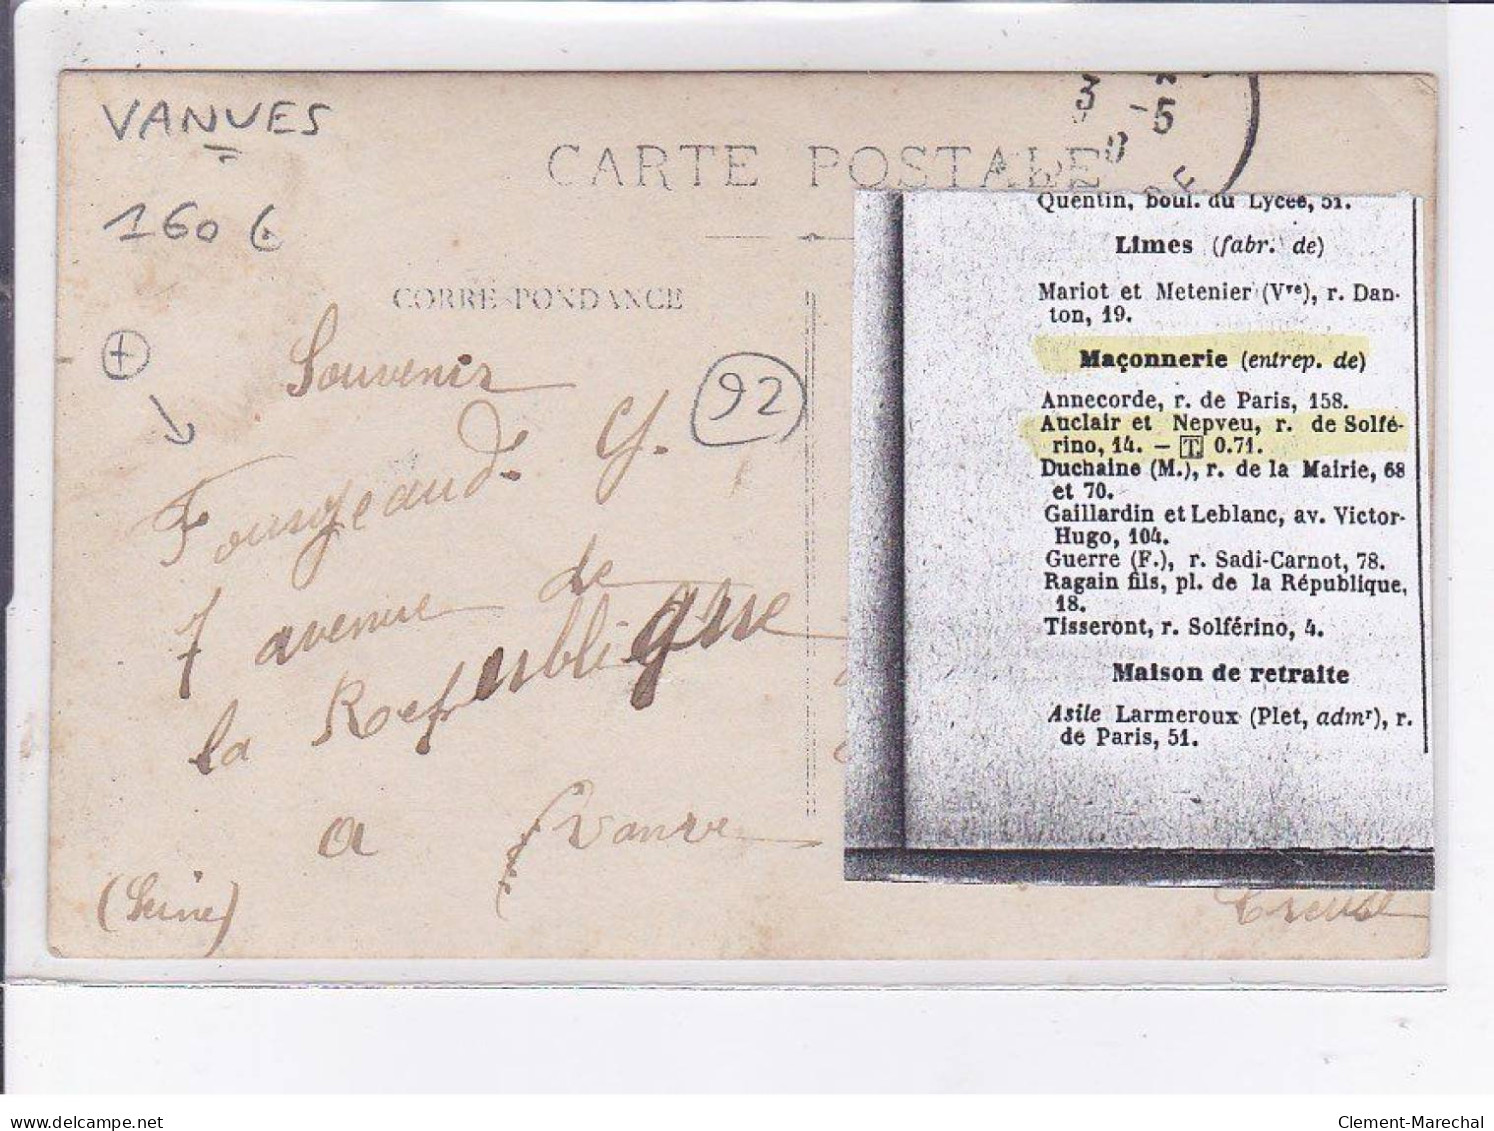 VANVES
160 €
CARTE POSTALE
3 -5
CORRESPONDANCE
92
Souvenir
Fourgeaud. G.
7 avenue de
la Republique
a Vanve
(Seine)
Creuse
Quentin, boul. du Lycée, 51.
Limes (fabr. de)
Mariot et Metenier (Vve), r. Dan-
ton, 19.
Maçonnerie (entrep. de)
Annecorde, r. de Paris, 158.
Auclair et Nepveu, r. de Solfé-
rino, 14. — T. 0.71.
Duchaine (M.), r. de la Mairie, 68
et 70.
Gaillardin et Leblanc, av. Victor-
Hugo, 104.
Guerre (F.), r. Sadi-Carnot, 78.
Ragain fils, pl. de la République,
18.
Tisseront, r. Solférino, 4.
Maison de retraite
Asile Larmeroux (Plet, admr), r.
de Paris, 51.
delcampe.net
Clement-Marechal